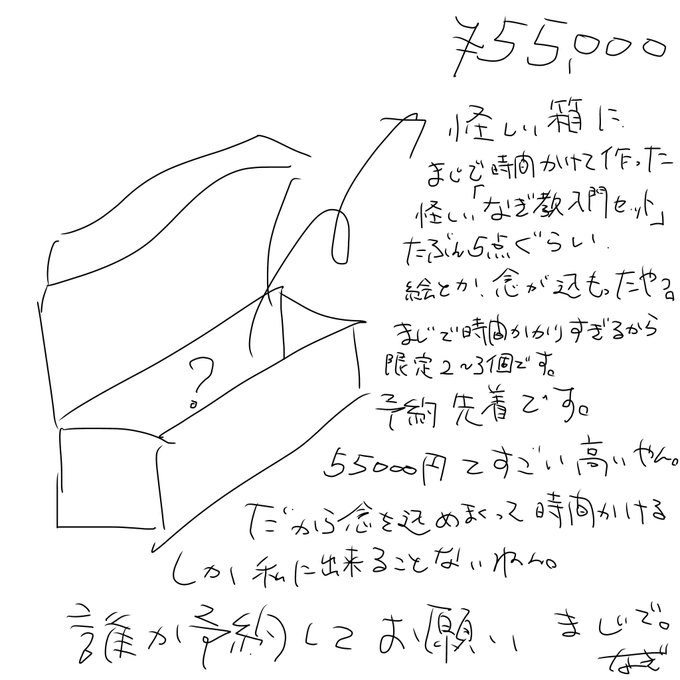 ¥55,000
怪しい箱に
まじで時間かけて作った
怪しい「なぎ教入門セット」
たぶん5点ぐらい.
絵とか、念が込もったやつ。
まじで時間かかりすぎるから
限定2~3個です。
予約先着です。
55000円てすごい高いやん。
だから念を込めまくって時間かける
しか私に出来ることないねん。
誰か予約してお願い まじで。
なぎ
?